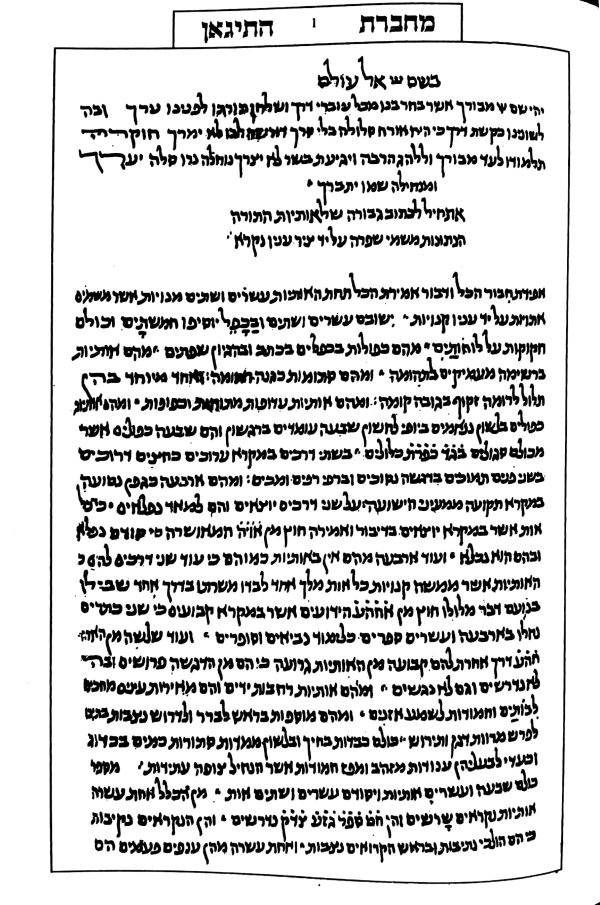 מחברת 1 התיגאן
בשם יי אל עולם
יהי שם יי מבורך אשר בחר בנו מכל עוברי דרך ושלחן ערך ובה
לשוננו כקשת דרך כי היא אורח סלולה בלי סרך לא ימרך
תלמודו לעד מבורך וללהג הרבה ויגיעת בשר לא יצרך נוחלה נרו סלה יערך
ומנחילה שמו יתברך
אתחיל לכתוב גבורה שלאותיות התורה
הנתונות משמי שפרה על יד ציר ענין נקרא
חבור הכל ודבור אמירת הכל תחת האותיות עשרים ושתים מנויות אשר
אתויות על יד ענין קנויות ישובם עשרים ושתים ובכפל יוסיפו חמשתים וכולם
חקוקות על לוחותים מהם כפולות בכפלים בכתב ובהגיון שפתים מהם אותיות
ברשימה מעמיקים בתהומה ומהם סתומות כגנה חתומה אחד מיוחד בהן
תלול לרומה זקוף בגובה קומה ומהם אותיות עדופות וכפופות ומהם
כפולים בלשון נפעמים ביופי לחשון שבעה עומדים ברגשון והם שבעה כפולים אשר
מכולם סגולים בגד כפרת כלולים בשתי דרכים במקרא ערוכים כחיצים דרוכים
בשני פנים תמוכים בדגשה נסוכים וברפי רפים ומכים ומהם ארבעה כגפן נטועה
במקרא תקועה ממעיני הישועה על שני דרכים יוצאים והם למאד נפלאים כי
אות אשר במקרא יוצאים בדיבור ואמירה חוץ מן אויה המאושרה כי קודם נפלא
ובהם הוא נכלא ועוד ארבעה מהם אין באותיות כמוהם כי עוד שני דרכים להם כי
האותיות אשר ממשה קנויות כל אות מלך אחד לבדו משרת בדרך אחד שבילו
בנועם דבר מלולו חוץ מן אההע הידועים אשר במקרא קבועים כי שני
נחלו בארבעה ועשרים ספרים כלמוד נביאים וסופרים ועוד שלשה מן האותיות
אהע דרך אחרת להם קבועה מן האותיות גרועה כי הם מן הדגשה פרושים ובה
לא נדרשים וגם לא נגשים ומהם אותיות רחבות ידים והם מאירות עינים מחכמים
לבותים וחמודות לשמע אזנים ומהם מוספות בראש לברר ולדרוש נצבות
לפרש מרוות דגן ותירוש כולם כבדות בחיך ובלשון ממדות סתורות כמנים
ובעדי לבעליהן ענודות מזהב ומפז חמודות אשר הנחיל צופה עתידות מספר
כולם שבעה ועשרים אותיות ויסודם עשרים ושתים אות מן הכלל אחת עשרה
אותיות נקראים שרשים והן חט ספר גזע צדק נדרשים והן הנקראים נקיבות
כי הם הולכי נתיבות ובראש הקרואים נצבות ואחת עשרה מהן ענפים פעמים הם